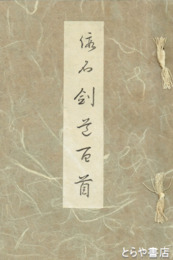 依石剣道百首
とらや書店